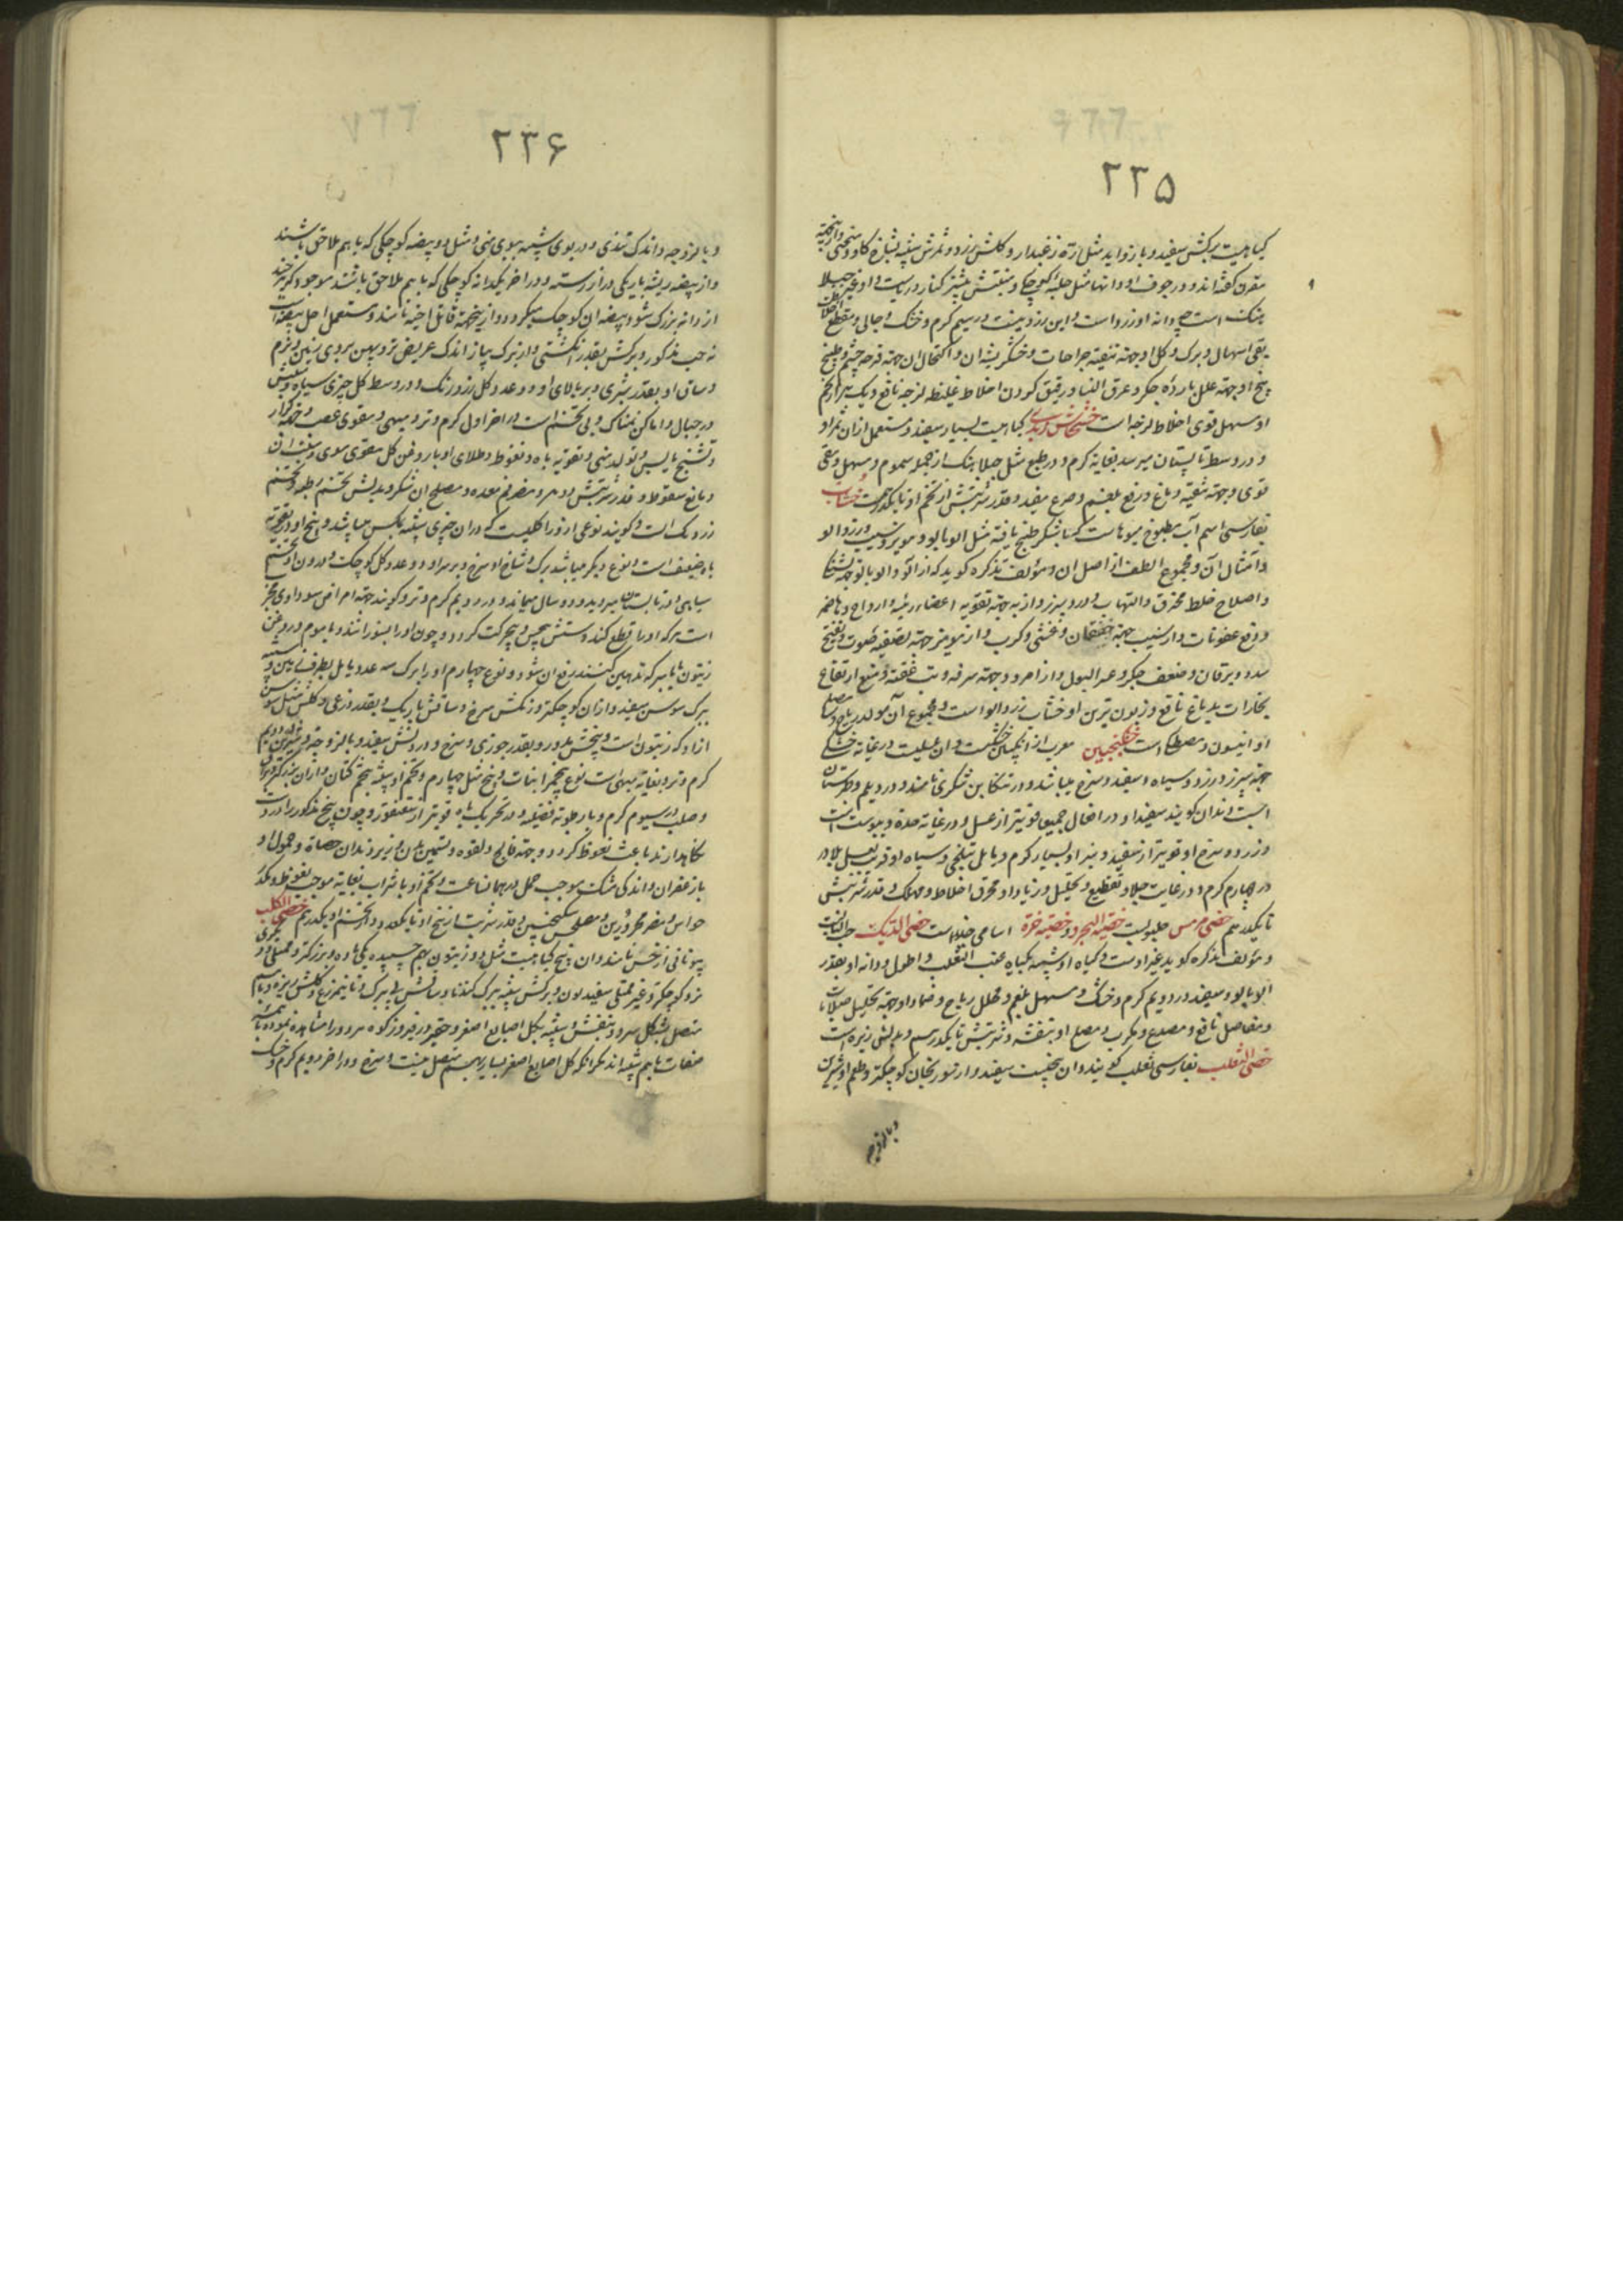 ۲۳۵
کیاهیست برکش سفید و با زواید مثل اره و زغبدار و کلش زرد و ثمرش شبیه بشاخ کاو و منحنی و ازینجهة
مقرن کفته‌اند و در جوف او دانها مثل حلبه کوچک و منبتش بیشتر کنار دریاست و او غیر جبلا
هنک است چه دانه او زرد است و این در سیم کرم و خشک و جالی و مقطع
بقی و اسهال و برک و کل او جهة تنقیه جراحات و خشکریشه ان و اکتحال ان جهة قرحه چشم و طبیخ
بیخ او جهة علل بارده جکر و عرق النسا و رقیق کردن اخلاط غلیظه لزجه نافع و یک
او مسهل قوی اخلاط لزجه است خشخاش زبدی کیاهیست بسیار سفید و مستعمل از ان ثمر او
و در وسط تابستان میرسد بغایة کرم و در طبع مثل جبلاهنک از جمله سموم و مسهل و مقی
قوی و جهة تنقیه دماغ و رفع بلغم و صرع مفید و قدر شربتش از تخم او تا یکدرم است خشاب
بفارسی اسم آب مطبوخ میوهاست که با شکر طبخ یافته مثل الوبالو و مویز و سیب و زردالو
و امثال آن و مجموع الطف از اصل ان و مؤلف تذکره کوید که از آلو و الوبالو جهة
و اصلاح خلط محترق و التهاب و درد سر و از به جهة تقویه اعضاء رئیسه و ارواح و هاضمه
و رفع عفونات و از سیب جهة خفقان و غشی و کرب و از مویز جهة تصفیه صوت و تفتیح
سدد و یرقان و ضعف جکر و عسر البول و از امرود جهة سرفه و تب و منع ارتفاع
بخارات بدماغ نافع و زبون ترین او خشاب زردالو است و مجموع آن مولد ریاح و مصلح
او انیسون و مصطکی است خشکنجبین معرب از انکبین خشکست و ان عسلیست در غایة خشکی
و زرد و سیاه و سفید و سرخ میباشد و در تنکابن شکری نامند و در دیلم و طبرستان
کویند سفید او در افعال جمیع قویتر از عسل و در غایة حدة و یبوست است
و زرد و سرخ او قویتر از سفید و سبز او بسیار کرم و مایل بتلخی و سیاه او قریب بعسل بلادر
در چهارم کرم و در غایت جلا و تقطیع و تحلیل و زیاد او محرق اخلاط و مهلک و قدر شربتش
تا یکدرهم خصی هرمس حلبوبست خصیة البحر و خصیه خزه اسامی است خصی الدیک حب
و مؤلف تذکره کوید غیر اوست و کیاه او شبیه بکیاه عنب الثعلب و اطول و دانه او بقدر
آلوبالو و سفید در دویم کرم و خشک و مسهل بلغم و محلل ریاح و ضماد او جهة تحلیل صلابات
و مفاصل نافع و مصدع و مکرب و مصلح او بنفشه و شربتش تا یکدرهم و بدلش زیره است
خصی الثعلب بفارسی ثعلب کویند و ان بیخیست سفید و از سورنجان کوچکتر و طعم او شیرین
و با لزوجه
۲۳۶
و با لزوجه و اندک تندی و در بوی شبیه ببوی منی و مثل دو بیضه کوچکی که با هم ملاحق باشند
و از بیضه ریشه باریکی دراز رسته و در اخر یکدانه کوچکی که با هم ملاحق باشند موجود کردد
از دانه بزرک شود بیضه ان کوچک میکردد و ازینجهة قاتل اخیه نامند و مستعمل اصل بیضه
مذکور و برکش بقدر انکشتی و از برک پیاز اندک عریض تر و پهن بروی زمین و نرم
و ساق او بقدر شبری و بر بالای او دو عدد کل زرد رنک و در وسط کل چیزی سیاه و منبتش
در جبال و اماکن نمناک و بی تخم است در اخر اول کرم و تر و مبهی و مقوی عصب و جهة کزاز
و تشنج یابس و تولید منی و تقویه باه و نعوظ و طلای او با روغن کل مقوی موی و
و مانع سقوط او قدر شربتش دو درم و مضر فم معده و مصلح ان شکر و بدلش تخم
زردک است و کویند نوعی از او را که در ان چیزی شبیه بمکس میباشد و بیخ او در تقویه
باه ضعیف است و نوع دیکر میباشد برک و شاخ او سرخ و بر سر او دو عدد کل کوچک و درون او تخم
سیاهی و در تابستان میروید و دو سال میماند و در دویم کرم و تر و کویند جهة امراض سوداوی مجرب
است هرکه او را قطع کند دستش بیحس و بیحرکت کردد و چون او را بسوزانند و با موم و روغن
زیتون تدهین کنند رفع ان شود و نوع چهارم او را برک سه عدد مایل بطرف زمین و شبیه
ببرک سوسن سفید و از ان کوچکتر و رنکش سرخ و ساقش باریک و بقدر ذرعی و کلش مثل سوسن
ازاد که زنبق است و بیخش مدور و بقدر جوزی و سرخ و درونش سفید و با لزوجة و شیرین و در دویم
کرم و تر و بغایة مبهی است نوع پنجم را نبات و بیخ مثل چهارم و تخم او شبیه بتخم کتان و از ان بزرکتر و براق
و صلب در سیوم کرم و با رطوبة فضلیه و در تحریک باه قویتر از سقنقور و چون بیخ مذکور را در دست
نکاهدارند باعث نعوظ کردد و جهة فالج و لقوه و تسمین بدن و ریزانیدن حصاة و حمول او
با زعفران و اندکی مشک موجب حمل در همانساعت و تخم او با شراب بغایة موجب نعوظ و مکدر
حواس و مضر محرورین و مصلحش سکنجبین و قدر شربت از بیخ او تا یکعدد و از تخم او یکدرهم خصی الکلب
یونانی ارخس نامند و ان بیخ کیاهیست مثل دو زیتون بهم چسپیده یکی ماده و بزرکتر و ممتلی و دیکری
نر و کوچکتر و غیر ممتلی سفید لون و برکش شبیه ببرک کندنا و ساقش بی برک و تا نیم ذرع و کلش ریزه و با هم
متصل بشکل سرو و بنفش و شبیه بکل اصابع اصفر و حقیر در فیروزکوه هر دو را مشاهده نموده بهمه
صفات با هم شبیه‌اند مکر انکه کل اصابع اصفر بسیار بهم متصل نیست و سرخ و در اخر دویم کرم و خشک